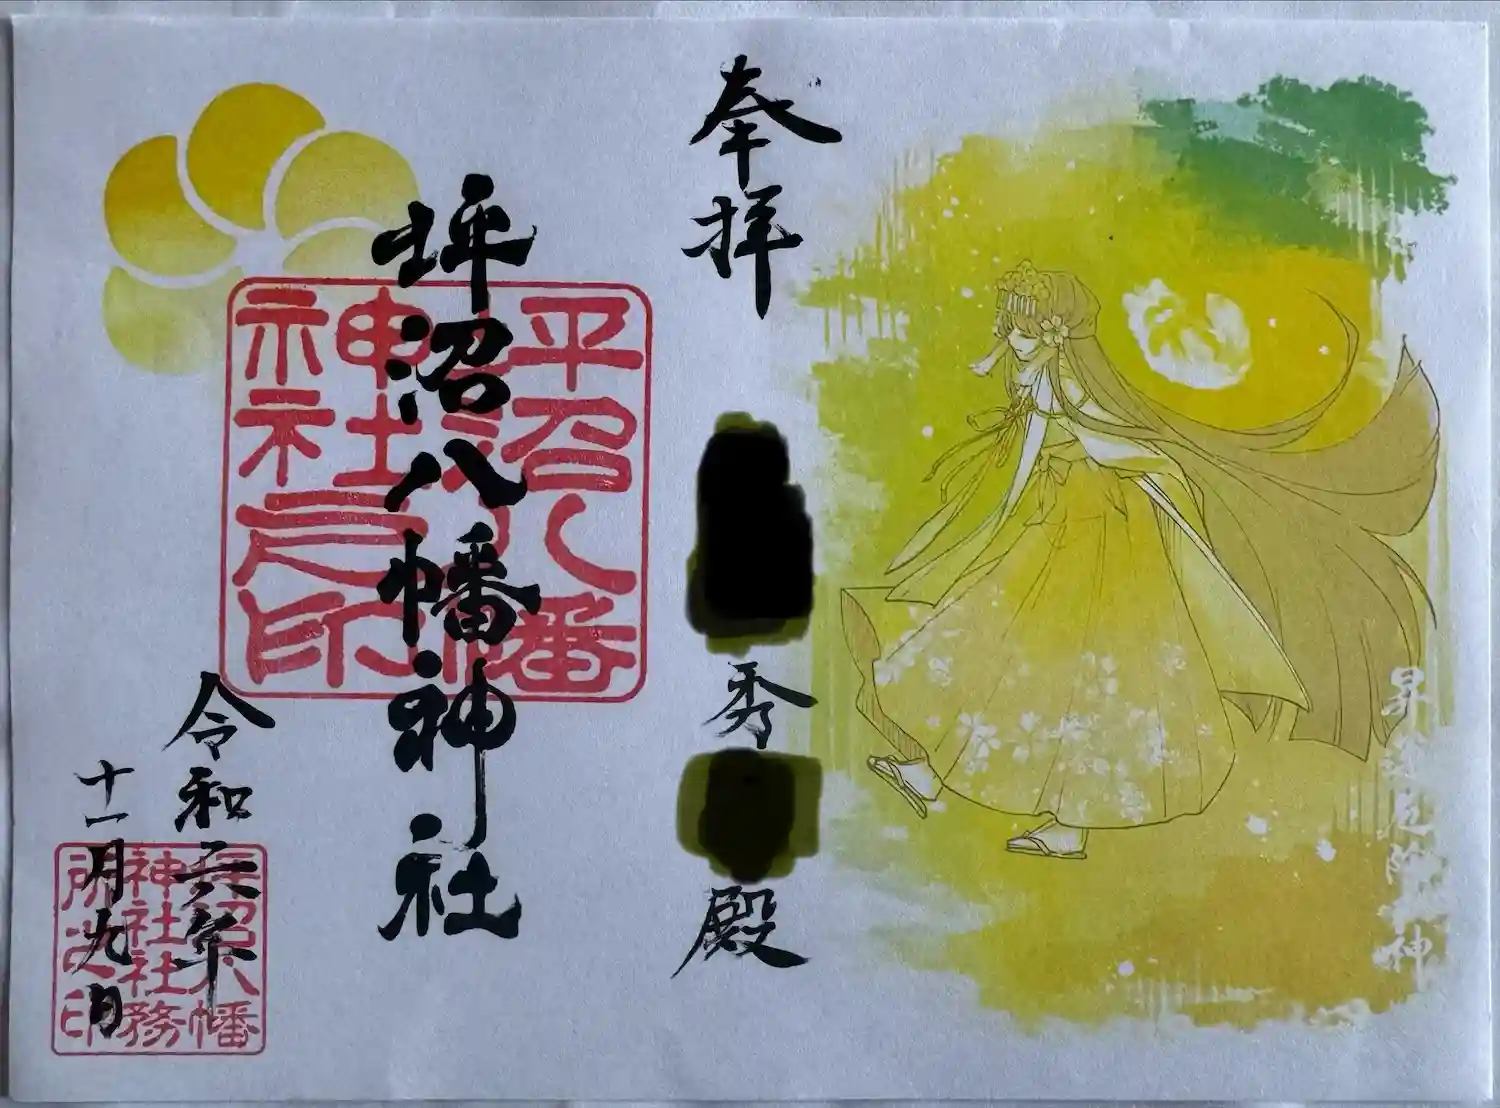 昇神
奉拝
秀
殿
坪沼八幡神社
坪沼八幡
神社之印
令和六年
十一月九日
坪沼八幡
神社社務
所之印